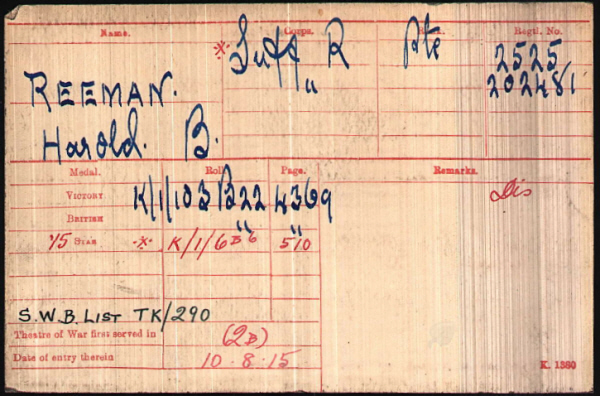 Name. Corps. Rank. Regtl. No.
* Suff R Pte 2525
REEMAN. " 202481
Harold. B.
Medal. Roll. Page. Remarks.
VICTORY K/1/103 B22 4369 Dis
BRITISH " "
15 STAR * K/1/6 B 6 510
S.W.B. LIST TK/290
Theatre of War first served in (2B)
Date of entry therein 10-8-15
K. 1380